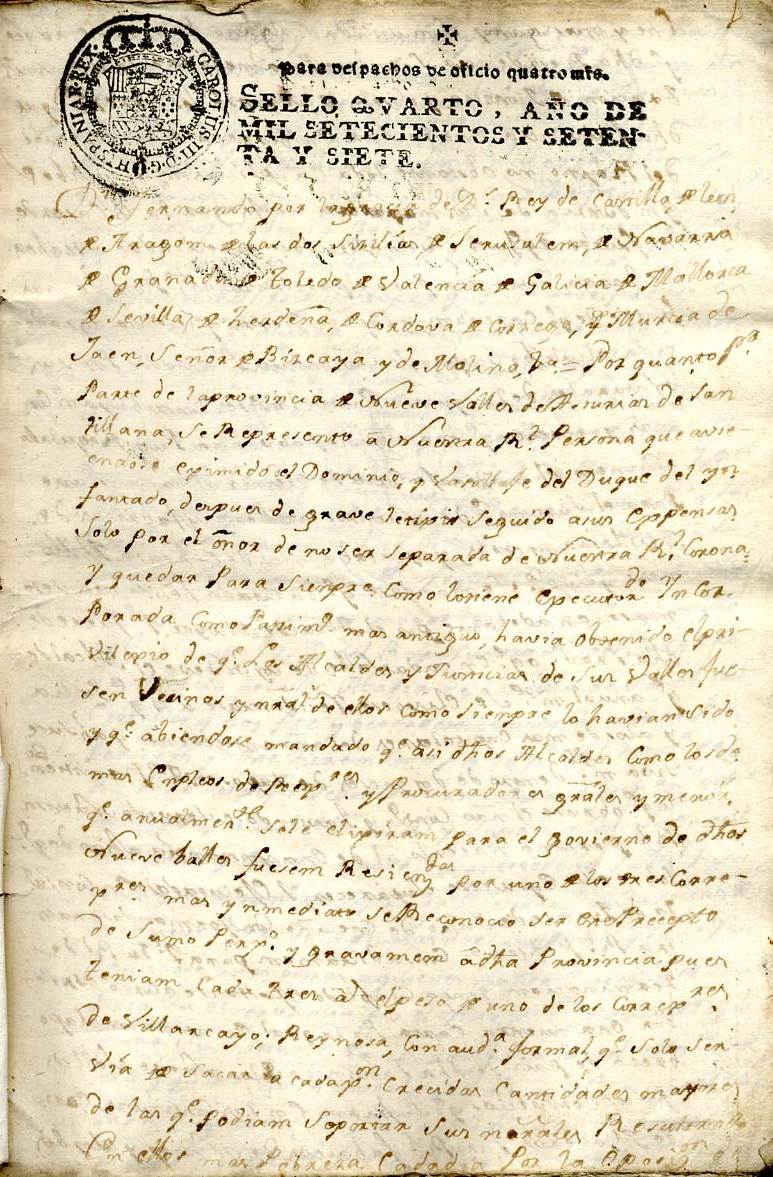 CAROLUS III D G HISPANIAR REX
Para despachos de oficio quatro mrs.
SELLO QVARTO, AÑO DE
MIL SETECIENTOS Y SETEN-
TA Y SIETE.
Fernando por la gracia de Ds. Rey de Castilla, de leon
de Aragom, de las dos Sicilias, de Jerusalem, de Navarra
de Granada de Toledo de Valencia de Galicia de Mallorca
de Sevilla, de Zerdeña, de Cordova de Correga, y Murcia de
Jaen, Señor de Bizcaya y de Molina, &a = Por quanto pr.
Parte de la provincia de Nueve Valles de Asturias de San
tillana, se Represento a Nuestra Rl. Persona que avi-
endose eximido el Dominio, y Vasallaje del Duque del yn
fantado, despues de grave letixio seguido a sus expensas
Solo por el onor de no ser separada de Nuestra Rl. Corona
y quedar Para Sienpre Como lo tiene executorado Yncor
Porada Como Patrimo. mas antiguo, havia obtenido el pri-
vilexio de qe. Los Alcaldes y Justicias de Sus Valles fue-
sen Vecinos y nrales. de ellos como sienpre lo havian sido
y qe. abiendose mandado qe. asi dhos Alcaldes Como los de
mas Enpleos de y Procuradores grales y menor
qe. anualmente Se le elixiram para el govierno de dhos
Nueve balles fuesem Residendas por uno de los tres Corre-
xres mas ynmediato se Reconocio ser este Precepto
de Sumo Perxo. y gravamem á dha Provincia pues
teniam Cada tres as el peso de uno de los Correxres.
de Villarcayo, Reynosa, Con auda. formal, qe. Solo ser-
via de Sacar a cada Crecidas Cantidades mayores
de las qe. podiam Soportar Sus nrales
En ellos mas Pobreza Cada dia Por la